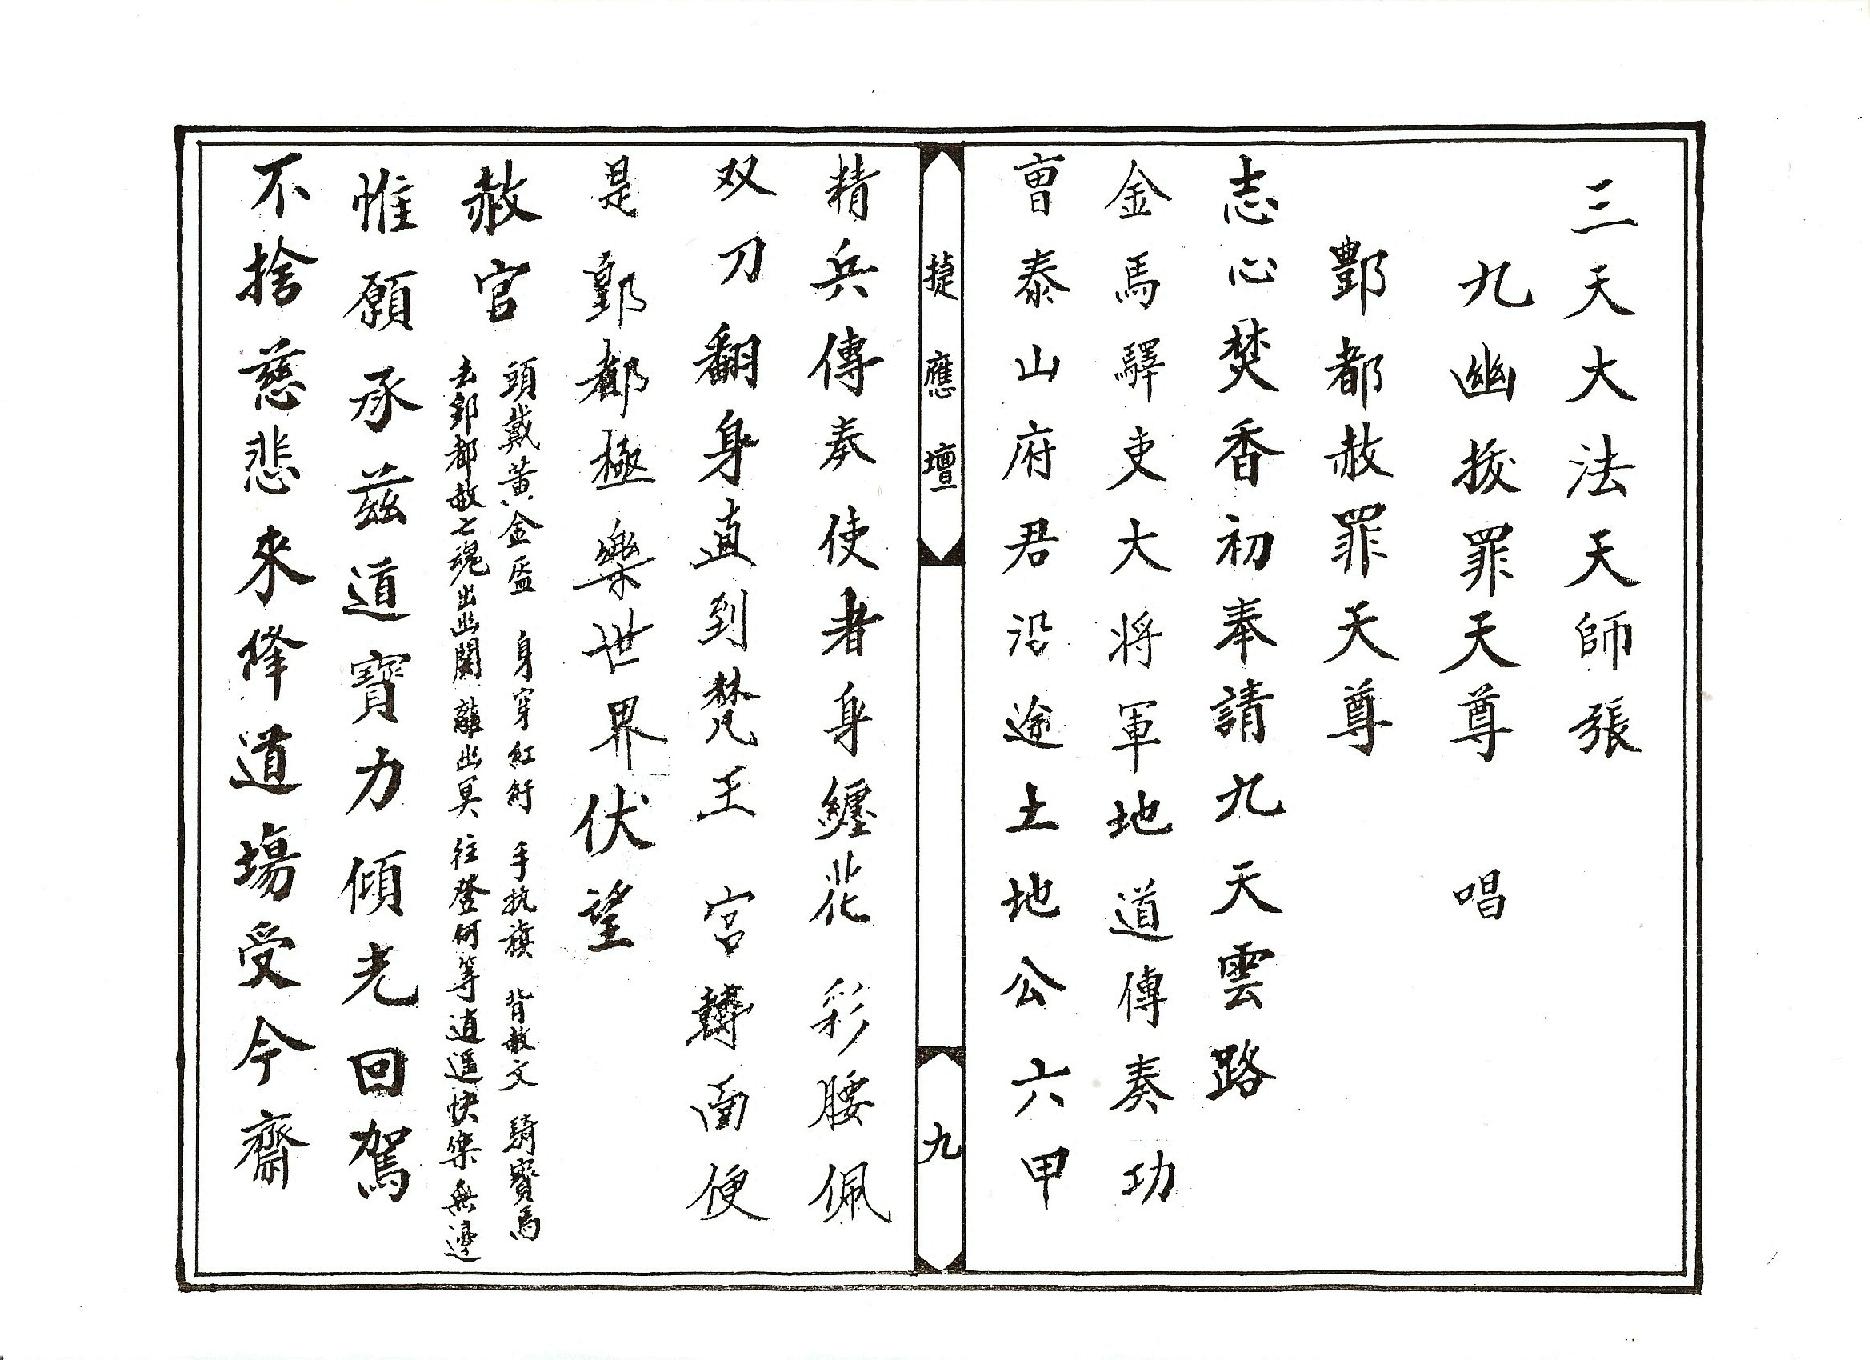 三天大法天師張
九幽拔罪天尊 唱
酆都赦罪天尊
志心焚香初奉請九天雲路
金馬驛吏大將軍地道傳奏功
曺泰山府君沿途土地公六甲
捷應壇
九
精兵傳奏使者身纏花彩腰佩
双刀翻身直到梵王宮轉面便
是酆都極樂世界伏望
赦官
頭戴黃金盔 身穿紅 手執旗 背赦文 騎寶馬
去酆都赦亡魂出幽関離出冥往登何等逍遥快樂無邊
惟願承茲道寶力傾光回駕
不捨慈悲來降道場受今齋